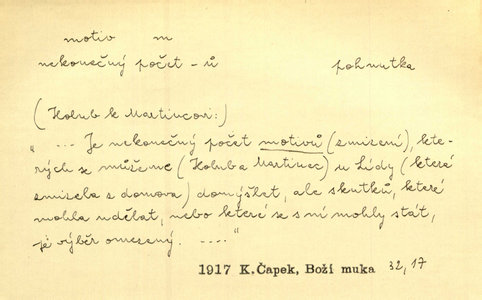 motiv m
nekonečný počet -ů pohnutka
(Holub k Martincovi:)
"... Je nekonečný počet motivů (zmizení), kte-
rých se můžeme (Holub a Martinec) u Lídy (která
zmizela z domova) domýšlet, ale skutků, které
mohla udělat, nebo které se s ní mohly stát,
je výběr omezený. ...."
1917 K.Čapek, Boží muka 32,17